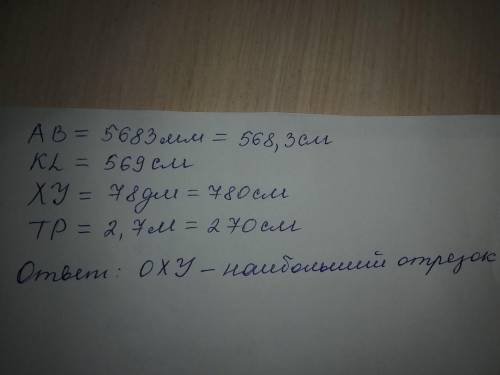 AB = 5683мм = 568,3см
KL = 569см
XY = 78дм = 780см
TP = 2,7м = 270см
Ответ: OXY – наибольший отрезок